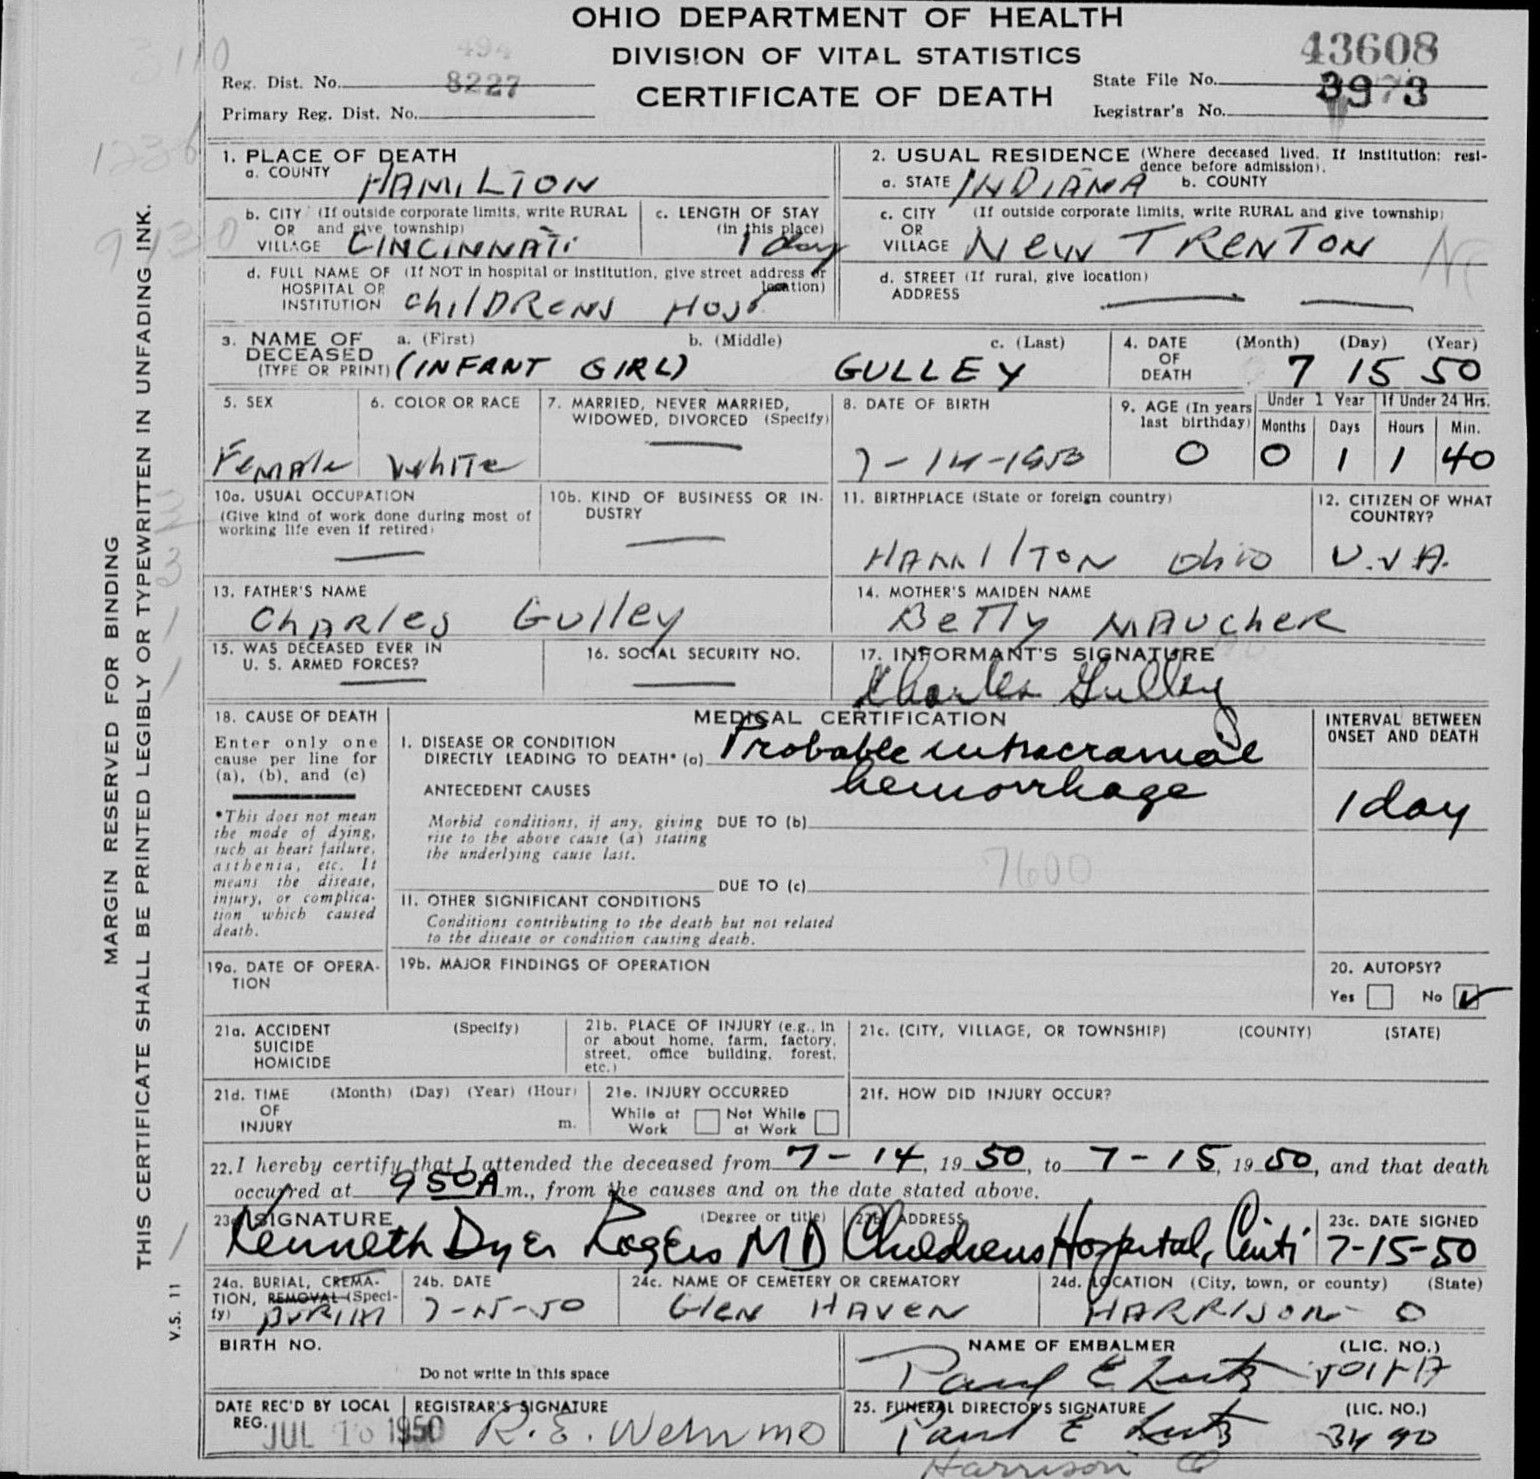 OHIO DEPARTMENT OF HEALTH
DIVISION OF VITAL STATISTICS
CERTIFICATE OF DEATH
Reg. Dist. No. 8227
Primary Reg. Dist. No.
43608
State File No.
Registrar's No. 3973
1. PLACE OF DEATH
a. COUNTY HAMILTON
2. USUAL RESIDENCE (Where deceased lived. If institution: resi-
dence before admission).
a. STATE INDIANA b. COUNTY
b. CITY (If outside corporate limits, write RURAL
OR and give township)
VILLAGE CINCINNATI
c. LENGTH OF STAY
(in this place)
1 day
c. CITY (If outside corporate limits, write RURAL and give township)
OR
VILLAGE NEW TRENTON
d. FULL NAME OF (If NOT in hospital or institution, give street address or
HOSPITAL OR location)
INSTITUTION CHILDRENS HOSP
d. STREET (If rural, give location)
ADDRESS
3. NAME OF a. (First) b. (Middle) c. (Last)
DECEASED
(TYPE OR PRINT) (INFANT GIRL) GULLEY
4. DATE (Month) (Day) (Year)
OF
DEATH 7 15 50
5. SEX
Female
6. COLOR OR RACE
White
7. MARRIED, NEVER MARRIED,
WIDOWED, DIVORCED (Specify)
8. DATE OF BIRTH
7-14-1950
9. AGE (In years
last birthday)
0
Under 1 Year
Months Days
0 1
If Under 24 Hrs.
Hours Min.
1 40
10a. USUAL OCCUPATION
(Give kind of work done during most of
working life even if retired)
10b. KIND OF BUSINESS OR IN-
DUSTRY
11. BIRTHPLACE (State or foreign country)
HAMILTON Ohio
12. CITIZEN OF WHAT
COUNTRY?
U.S.A.
13. FATHER'S NAME
Charles Gulley
14. MOTHER'S MAIDEN NAME
Betty MAUCHER
15. WAS DECEASED EVER IN
U. S. ARMED FORCES?
16. SOCIAL SECURITY NO.
17. INFORMANT'S SIGNATURE
Charles Gulley
18. CAUSE OF DEATH
Enter only one
cause per line for
(a), (b), and (c)
*This does not mean
the mode of dying,
such as heart failure,
asthenia, etc. It
means the disease,
injury, or complica-
tion which caused
death.
MEDICAL CERTIFICATION
I. DISEASE OR CONDITION
DIRECTLY LEADING TO DEATH* (a) Probable intracranial
hemorrhage
ANTECEDENT CAUSES
Morbid conditions, if any, giving DUE TO (b)
rise to the above cause (a) stating
the underlying cause last.
7600
DUE TO (c)
II. OTHER SIGNIFICANT CONDITIONS
Conditions contributing to the death but not related
to the disease or condition causing death.
INTERVAL BETWEEN
ONSET AND DEATH
1 day
19a. DATE OF OPERA-
TION
19b. MAJOR FINDINGS OF OPERATION
20. AUTOPSY?
Yes No
21a. ACCIDENT (Specify)
SUICIDE
HOMICIDE
21b. PLACE OF INJURY (e.g., in
or about home, farm, factory,
street, office building, forest,
etc.)
21c. (CITY, VILLAGE, OR TOWNSHIP) (COUNTY) (STATE)
21d. TIME (Month) (Day) (Year) (Hour)
OF
INJURY m.
21e. INJURY OCCURRED
While at Work Not While at Work
21f. HOW DID INJURY OCCUR?
22. I hereby certify that I attended the deceased from 7-14, 19 50, to 7-15, 19 50, and that death
occurred at 9 50 A m., from the causes and on the date stated above.
23a. SIGNATURE (Degree or title)
Kenneth Dyer Rogers MD
23b. ADDRESS
Childrens Hospital, Cinti
23c. DATE SIGNED
7-15-50
24a. BURIAL, CREMA-
TION, REMOVAL (Speci-
fy) BURIAL
24b. DATE
7-15-50
24c. NAME OF CEMETERY OR CREMATORY
Glen HAVEN
24d. LOCATION (City, town, or county) (State)
HARRISON O
BIRTH NO.
Do not write in this space
NAME OF EMBALMER (LIC. NO.)
Paul E Lutz
DATE REC'D BY LOCAL
REG. JUL 1950
REGISTRAR'S SIGNATURE
R.E. Wehr MD
25. FUNERAL DIRECTOR'S SIGNATURE (LIC. NO.)
Paul E Lutz 3490
Harrison O
MARGIN RESERVED FOR BINDING
THIS CERTIFICATE SHALL BE PRINTED LEGIBLY OR TYPEWRITTEN IN UNFADING INK.
V.S. 11